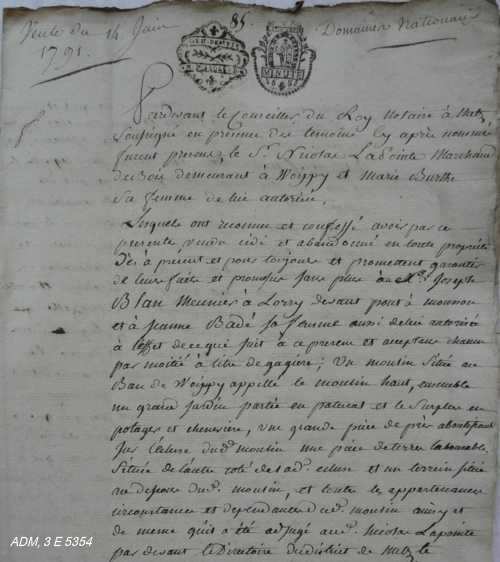 Vente du 14 Juin
1791.
85.
Domaines Nationaux
Pardevant le Conseiller du Roy Notaire à Metz
soussigné en presence des temoins cy après nommé
furent presens, le Sr. Nicolas Lapointe Marchand
de Bois demeurant à Woippy et Marie Burthe
sa femme de lui autorisée,
Lesquels ont reconnu et confessé avoir par ce
presente vendu cédé et abandonné en toute propriété
Dès à present et pour toujours et promettent garantir
de leurs faits et promesses faire jouir au Sr. Joseph
Blan Meunier à Lorry devant pont à mousson
et à Jeanne Badé sa femme aussi de lui autorisée
à l'effet de ce qué fait à ce present et acceptant chacun
par moitié à titre de gagère; Un moulin situé au
Ban de Woippy appellé le moulin haut, ensemble
un grand Jardin partie en paturat et le surplus en
potager et cheneviere, une grande pièce de prés aboutissant
sur l'écluse dud. moulin une pièce de terre labourable
située de l'autre coté de lad. écluse et un terrein situé
au dessous dud. moulin, et toutes les appartenances
circonstances et dependances dud. moulin ainsy et
de meme qu'il a été adjugé aud. Nicolas Lapointe
par devant le Directoire du district de Metz le
ADM, 3 E 5354